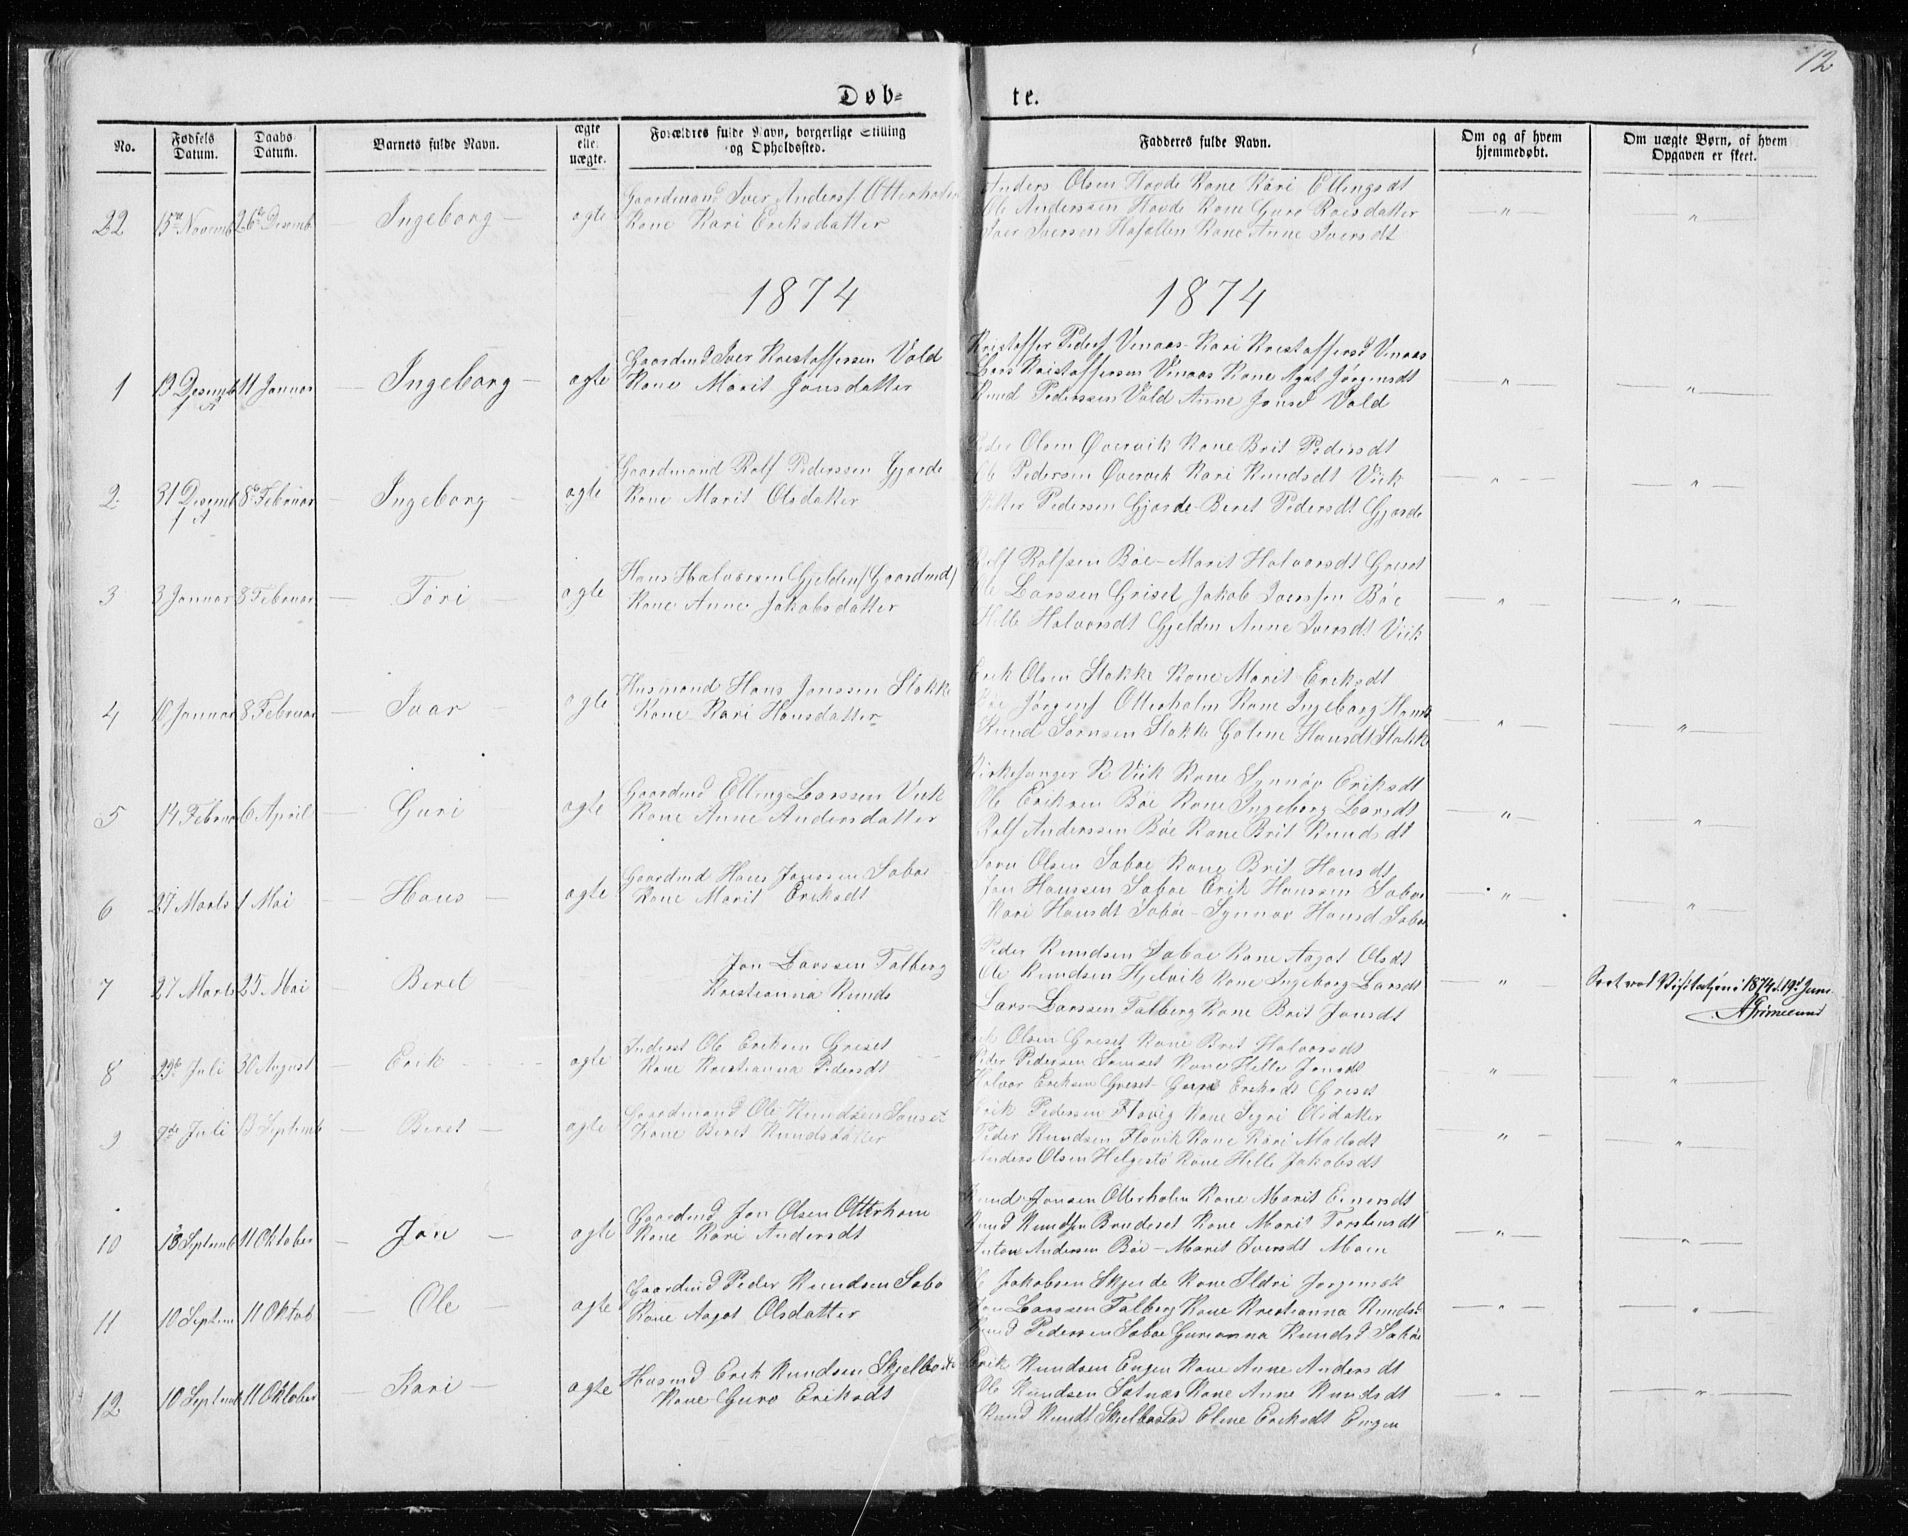 12
Døb-
te.
No.
Fødsels Datum.
Daabs Datum.
Barnets fulde Navn.
ægte eller uægte.
Forældres fulde Navn, borgerlige Stilling og Opholdssted.
Fadderes fulde Navn.
Om og af hvem hjemmedøbt.
Om uægte Børn, af hvem Opgaven er skeet.
22 15de Novemb 26de Desemb Ingeborg ægte
Gaardmand Iver Anders Otterholm
Kone Kari Eriksdatter
Anders Olsen Hovde Kone Kari Ellingsdt
Ole Anderssen Hovde Kone Guro Roesdatter
Iver Iversen Kone Anne Iversdt
1874
1874
1 19 Desemb 11 Januar Ingeborg ægte
Gaardmd Iver Kristoffersen Vold
Kone Marit Jonsdatter
Kristoffer Peders Venaas Kari Kristoffersd Venaas
Lars Kristoffersen Venaas Kone Agat Jørgensdt
Knud Pederssen Vold Anne Jonsd Vold
2 31 Desemb 8de Februar Ingeborg ægte
Gaardmand Rolf Pederssen Gjerde
Kone Marit Olsdatter
Peder Olsen Øvervik Kone Brit Pedersdt
Ole Pedersen Øvervik Kari Knudsdt Viik
Petter Pedersen Gjerde Beret Pedersdt Gjerde
3 3 Januar 8 Februar Tøri ægte
Hans Halvorsen Gjelden (Gaardmd)
Kone Anne Jakobsdatter
Rolf Rolfsen Bøe Marit Halvorsdt Griset
Ole Larssen Griset Jakob Iverssen Bøe
Hille Halvorsdt Gjelden Anne Iversdt Viik
4 10 Januar 8 Februar Ivar ægte
Husmand Hans Jonssen Stokke
Kone Kari Hansdatter
Erik Olsen Stokke Kone Marit Eriksdt
Jørgens Otterholm Kone Ingeborg Hansd
Knud Sørnsen Stokke Goline Hansdt Stokke
5 14 Februar 6 April Guri ægte
Gaardmd Elling Larssen Viik
Kone Anne Andersdatter
Kirkesanger K Viik Kone Synnøv Eriksdt
Ole Eriksen Bøe Kone Ingeborg Larsdt
Rolf Anderssen Bøe Kone Brit Knudsdt
6 27 Marts 1 Mai Hans ægte
Gaardmd Hans Jonssen Sabøe
Kone Marit Eriksdt
Sørn Olsen Sabøe Kone Brit Hansdt
Jon Hanssen Sabøe Erik Hanssen Sabøe
Kari Hansdt Sabøe Synnøv Hansd Sabøe
7 27 Marts 25 Mai Beret
Jon Larssen Talberg
Kristianna Knuds
Peder Knudsen Sabøe Kone Aagot Olsdt
Ole Knudsen Hjelvik Kone Ingeborg Larsdt
Lars Larssen Talberg Kone Brit Jonsdt
Seet ved Visitatsen i 1874 d. 19d Juni
AGrimelund
8 29de Juli 30 August Erik ægte
Inderst Ole Eriksen Griset
Kone Kristianna Pedersdt
Erik Olsen Griset Kone Brit Halvorsdt
Peder Pedersen Kone Hille Jonsdt
Halvor Eriksen Griset Guri Eriksdt Griset
9 9de Juli 13 Septemb Beret ægte
Gaardmand Ole Knudsen
Kone Beret Knudsdatter
Erik Pedersen Flovig Kone Sigri Olsdatter
Peder Knudsen Flovik Kone Kari Madsdt
Anders Olsen Helgestø Kone Hille Jakobsdt
10 13 Septemb 11 Oktober Jon ægte
Gaardmd Jon Olsen Otterholm
Kone Kari Andersdt
Knud Jonsen Otterholm Kone Marit Einersdt
Knud Knudsen Bruderet Kone Marit Torstensdt
Anton Andersen Bøe Marit Iversdt Moen
11 10 Septem 11 Oktob Ole ægte
Gaardmd Peder Knudsen Sabø
Kone Aagot Olsdatter
Ole Jakobsen Skjerde Kone Ildri Jørgensdt
Jon Larssen Talberg Kone Kristianna Knudsd
Knud Pedersen Sabøe Gurianna Knudsd Sabøe
12 10 Septemb 11 Oktober Kari ægte
Husmd Erik Knudsen Skjelbostad
Kone Guro Eriksdt
Erik Knudsen Engen Kone Anne Andersdt
Ole Knudsen Kone Anne Knudsdt
Knud Knudt Skjelbostad Eline Eriksdt Engen